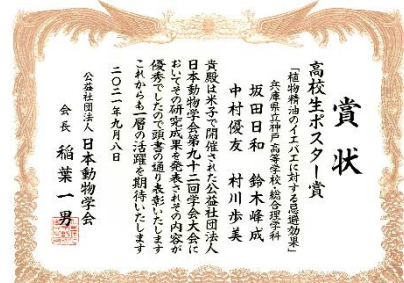 賞状
高校生ポスター賞
「植物精油のイエバエに対する忌避効果」
兵庫県立神戸高等学校 総合理学科
坂田日和 鈴木峰成
中村優友 村川歩美
貴殿は米子で開催された公益社団法人
日本動物学会第九十二回学会大会に
おいてその研究成果を発表されその内容が
優秀でしたので頭書の通り表彰いたします
これからも一層の活躍を期待いたします
二〇二一年九月八日
公益社団法人 日本動物学会
会長 稲葉一男